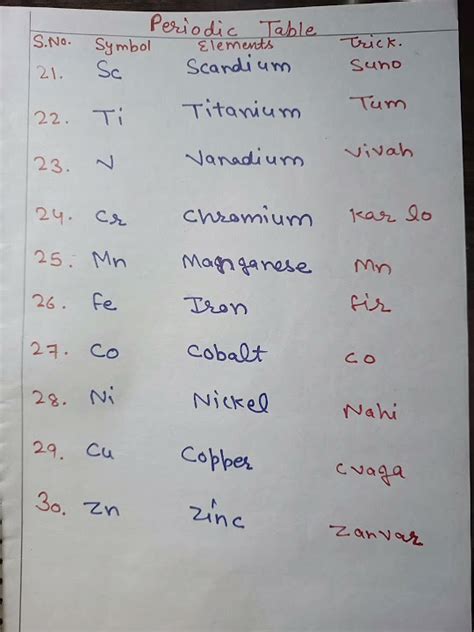 Periodic Table
S.No. Symbol Elements Trick.
21. Sc Scandium Suno
22. Ti Titanium Tum
23. V Vanadium Vivah
24. Cr Chromium Kar lo
25. Mn Manganese Mn
26. Fe Iron fir
27. Co Cobalt CO
28. Ni Nickel Nahi
29. Cu Copper Cvaga
30. Zn Zinc Zanvar